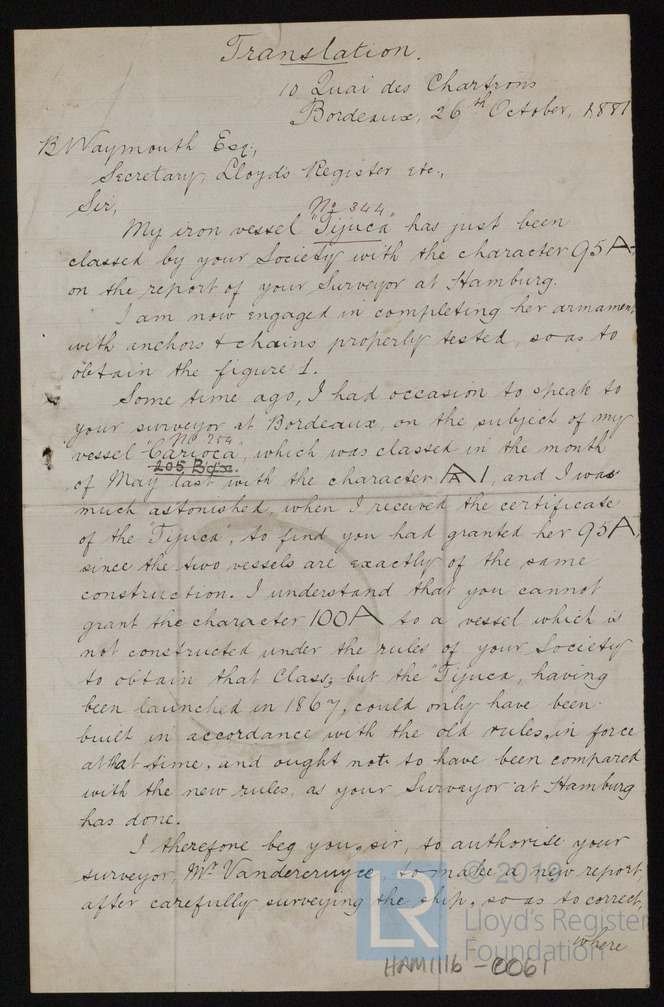 Translation.
10 Quai des Chartrons
Bordeaux, 26th October, 1881
B Waymouth Esq.,
Secretary, Lloyd's Register etc.,
Sir,
No 344
My iron vessel "Tijuca" has just been
classed by your Society with the character 95A-
on the report of your Surveyor at Hamburg.
I am now engaged in completing her armament
with anchors & chains properly tested, so as to
obtain the figure 1.
Some time ago, I had occasion to speak to
your surveyor at Bordeaux, on the subject of my
No 254
vessel "Carioca", which was classed in the month
205 Bdx.
of May last with the character A 1, and I was
much astonished, when I received the certificate
of the "Tijuca", to find you had granted her 95A,
since the two vessels are exactly of the same
construction. I understand that you cannot
grant the character 100A to a vessel which is
not constructed under the rules of your Society
to obtain that Class; but the "Tijuca", having
been launched in 1867, could only have been
built in accordance with the old rules, in force
at that time, and ought not to have been compared
with the new rules, as your Surveyor at Hamburg
has done.
I therefore beg you, sir, to authorise your
surveyor, Mr Vandercruyce, to make a new report,
after carefully surveying the ship, so as to correct,
where
HAM1116-0061
© 2019
LR
Lloyd's Register
Foundation